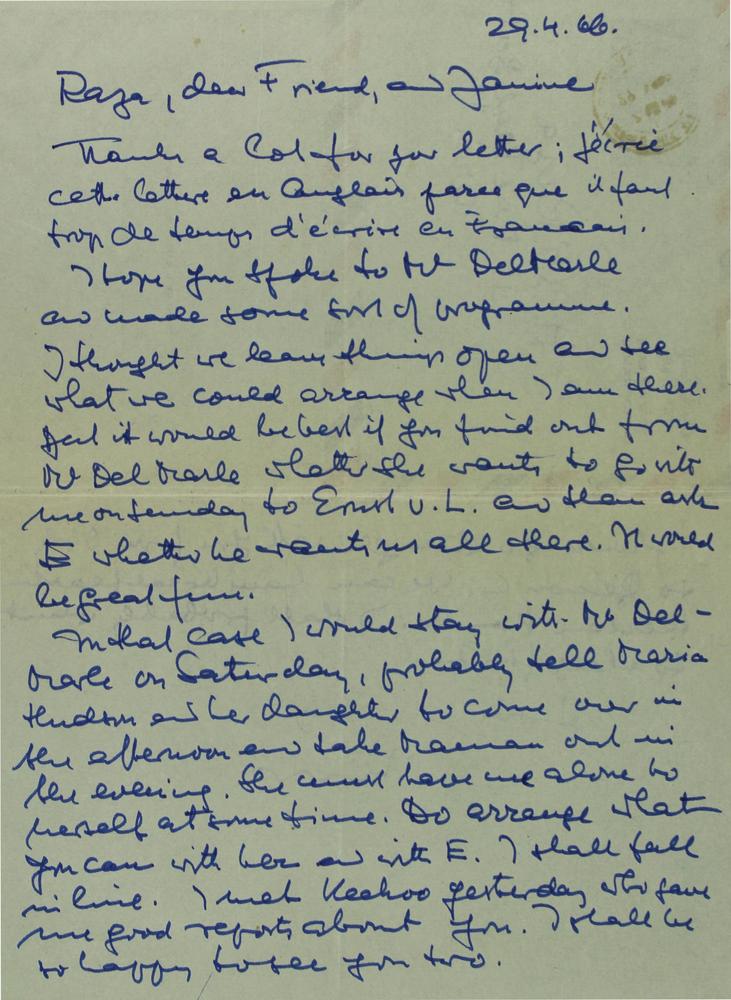 29.4.66.
Raza, dear Friend, and Janine
Thanks a lot for your letter; j'écrie
cette lettre en Anglais parce que il faut
trop de temps d'écrire en Francais.
I hope you spoke to Mr Delmarle
and made some sort of programme.
I thought we leave things open and see
what we could arrange when I am there.
But it would be best if you find out from
Mr Delmarle whether she wants to go with
me on Sunday to Ernst v. L. and then ask
E whether he wants us all there. It would
be great fun.
In that case I would stay with Mr Del-
marle on Saturday, probably tell Maria
Hudson and her daughter to come over in
the afternoon and take Maman out in
the evening. She must have me alone to
herself at some time. Do arrange what
you can with her and with E. I shall fall
in line. I met Keekoo yesterday who gave
me good reports about you. I shall be
so happy to see you two.